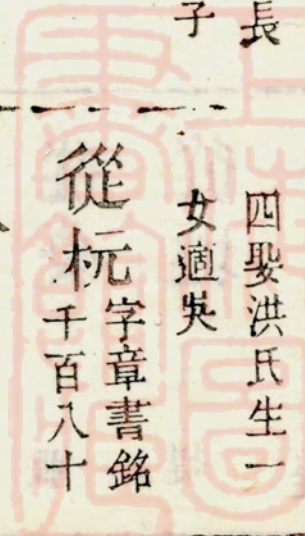 長
子
四娶洪氏生一
女適吳
從杬字章書銘
千百八十